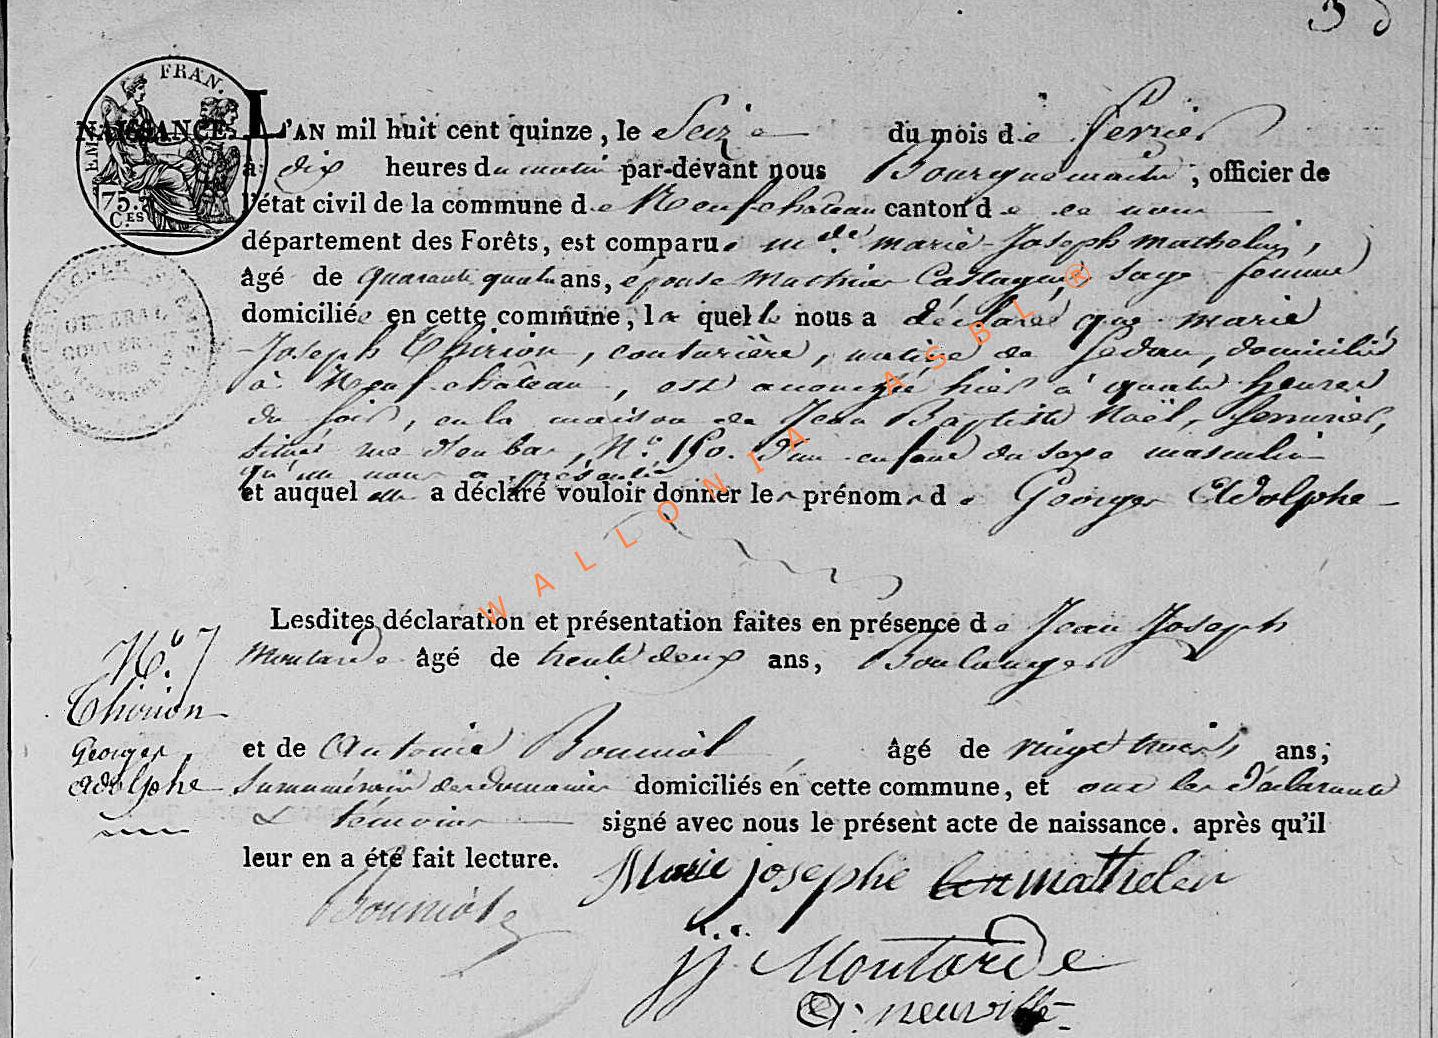 3
FRAN.
EM
75.
C.ES
GÉNÉRAL
GOUVER
NAISSANCE. L'AN mil huit cent quinze, le Seize du mois de fevrier
à dix heures du matin par-devant nous Bourguemaitre, officier de
l'état civil de la commune de Neufchâteau canton de ce nom
département des Forêts, est comparue m.de marie-Joseph mathelin,
âgé de quarante quatre ans, épouse Mathieu Castagne, sage femme
domiciliée en cette commune, la quelle nous a déclaré que marie
Joseph Thirion, couturière, native de Sedan, domiciliée
à Neufchâteau, est accouchée hier à quatre heures
du soir, en la maison de Jean Baptiste Noël, Serrurier,
située rue d'en bas, N.o 150. d'un enfant du sexe masculin
qu'elle nous a présenté
et auquel elle a déclaré vouloir donner les prénoms de Georges Adolphe
Lesdites déclaration et présentation faites en présence de Jean Joseph
Moutarde âgé de trente deux ans, Boulanger
N.o 7
Thirion
Georges
Adolphe
et de Antoine Bouniol, âgé de vingt trois ans,
Surnuméraire des domaines domiciliés en cette commune, et ont les déclarante
& témoins signé avec nous le présent acte de naissance. après qu'il
leur en a été fait lecture.
Marie josephe mathelin
Bouniol
jj. Moutarde
A. neuville
WALLONIA ASBL ®